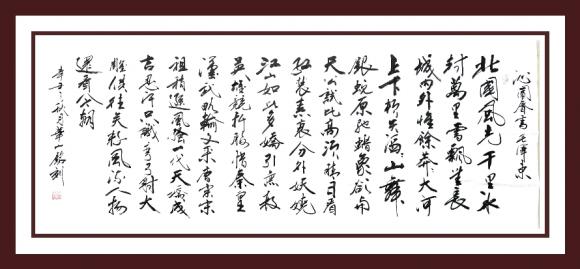 沁園春雪 毛澤東
北國風光千里冰
封萬里雪飄望長
城內外惟餘莽大河
上下頓失滔山舞
銀蛇原馳蠟象欲與
天公試比高須晴日看
紅裝素裹分外妖嬈
江山如此多嬌引無數
英雄競折腰惜秦皇
漢武略輸文采唐宗宋
祖稍遜風騷一代天驕成
吉思汗只識彎弓射大
雕俱往矣數風流人物
還看今朝
辛丑之秋月華山